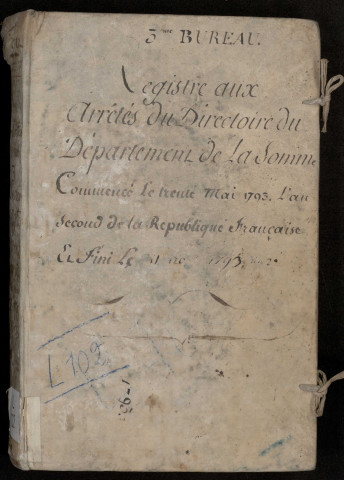 3me BUREAU.
Registre aux
Arrêtés du Directoire du
Département de La Somme
Commencé Le trente Mai 1793. L'an
Second de la République Française
Et Fini Le
L 102